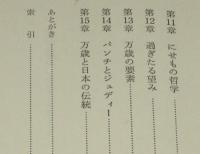 第11章　にせもの哲学
第12章　過ぎたる望み
第13章　万歳の要素
第14章　パンチとジュディー
第15章　万歳と日本の伝統
あとがき
索　引